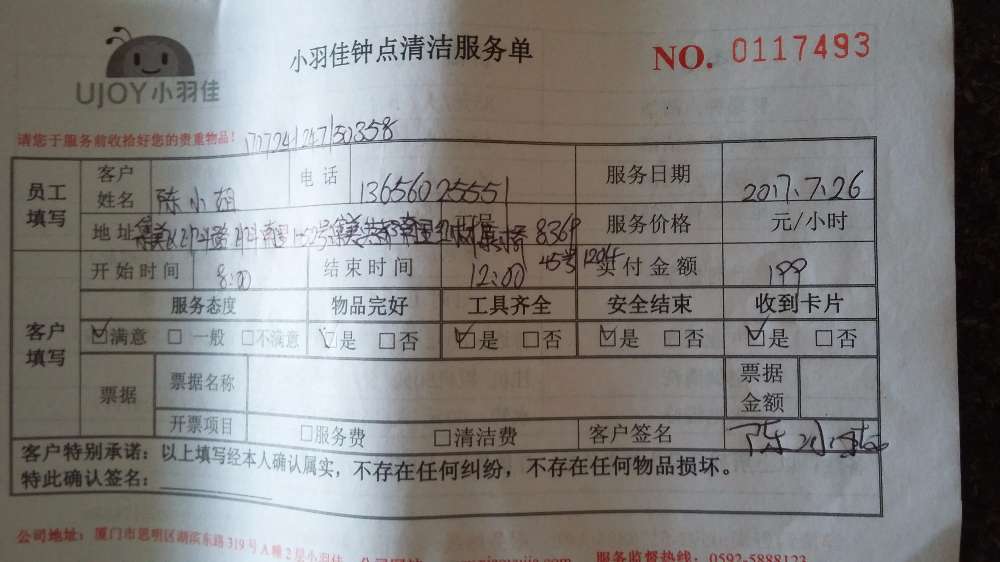 UJOY小羽佳
小羽佳钟点清洁服务单
NO. 0117493
请您于服务前收拾好您的贵重物品!
员工填写 客户姓名 陈小 电话 13656025551 服务日期 2017.7.26
地址 8369 服务价格 元/小时
开始时间 8:00 结束时间 12:00 实付金额 199
客户填写 服务态度 物品完好 工具齐全 安全结束 收到卡片
☑满意 □一般 □不满意 ☑是 □否 ☑是 □否 ☑是 □否 ☑是 □否
票据 票据名称 票据金额
开票项目 □服务费 □清洁费 客户签名 陈小
客户特别承诺:以上填写经本人确认属实,不存在任何纠纷,不存在任何物品损坏。
特此确认签名:
公司地址:厦门市思明区湖滨东路319号A幢2层小羽佳
服务监督热线:0592-5888123